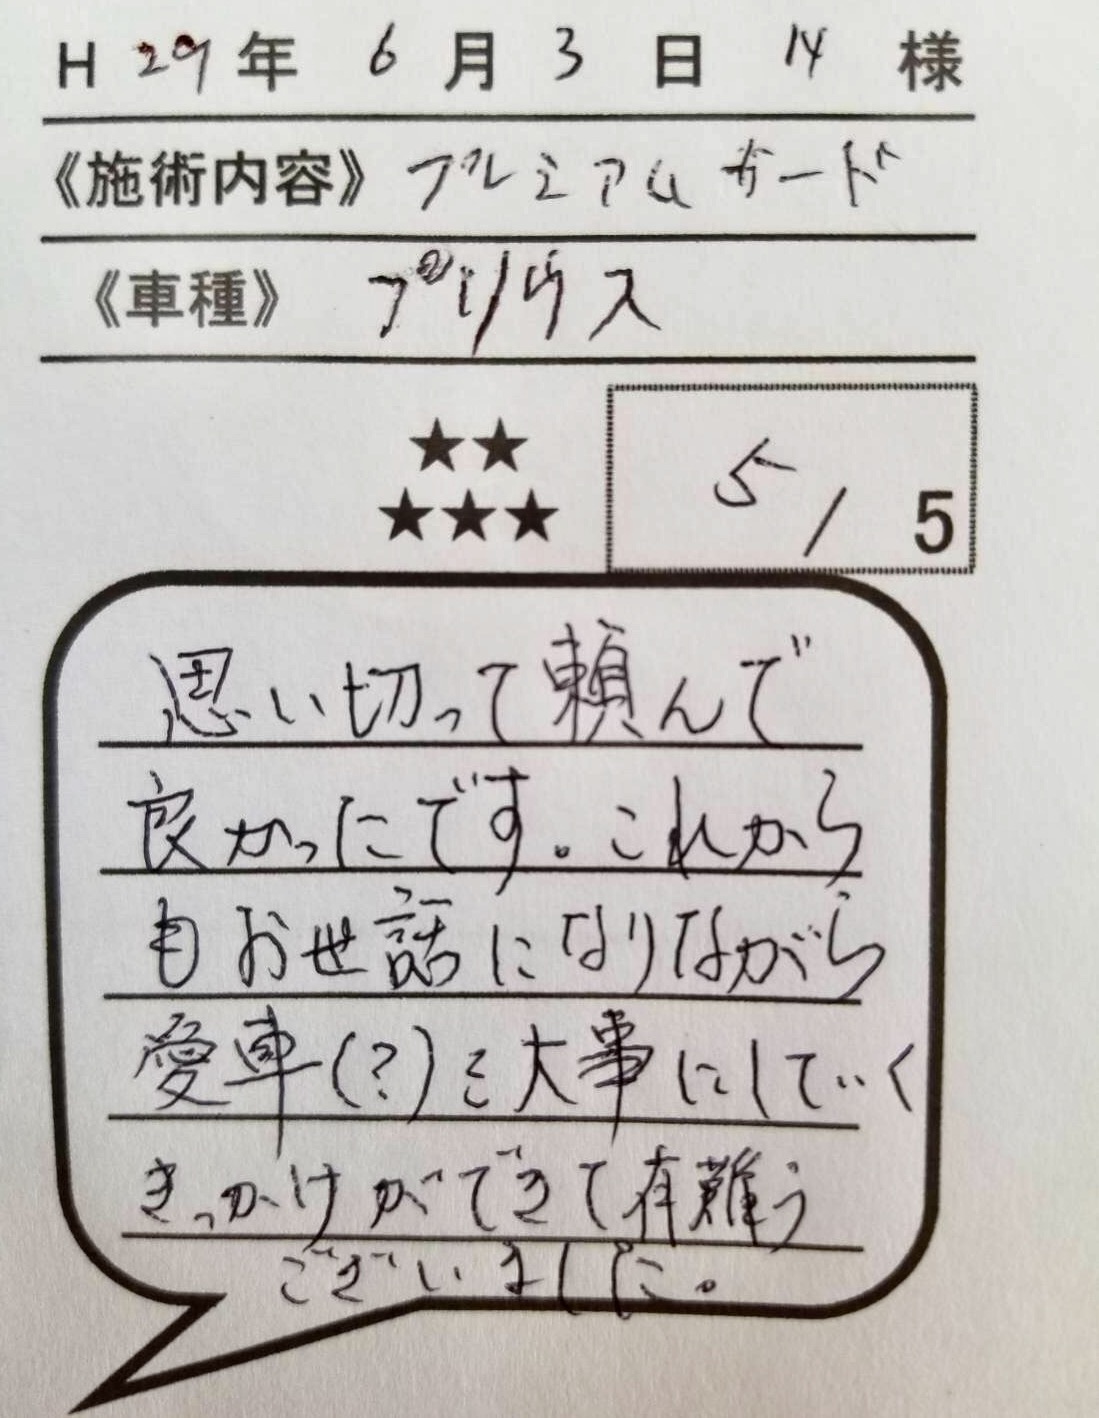 H 29 年 6 月 3 日 様
《施術内容》 プレミアムガード
《車種》 プリウス
★★
★★★
5 / 5
思い切って頼んで
良かったです。これから
もお世話になりながら
愛車(?)を大事にしていく
きっかけができて有難う
ございました。